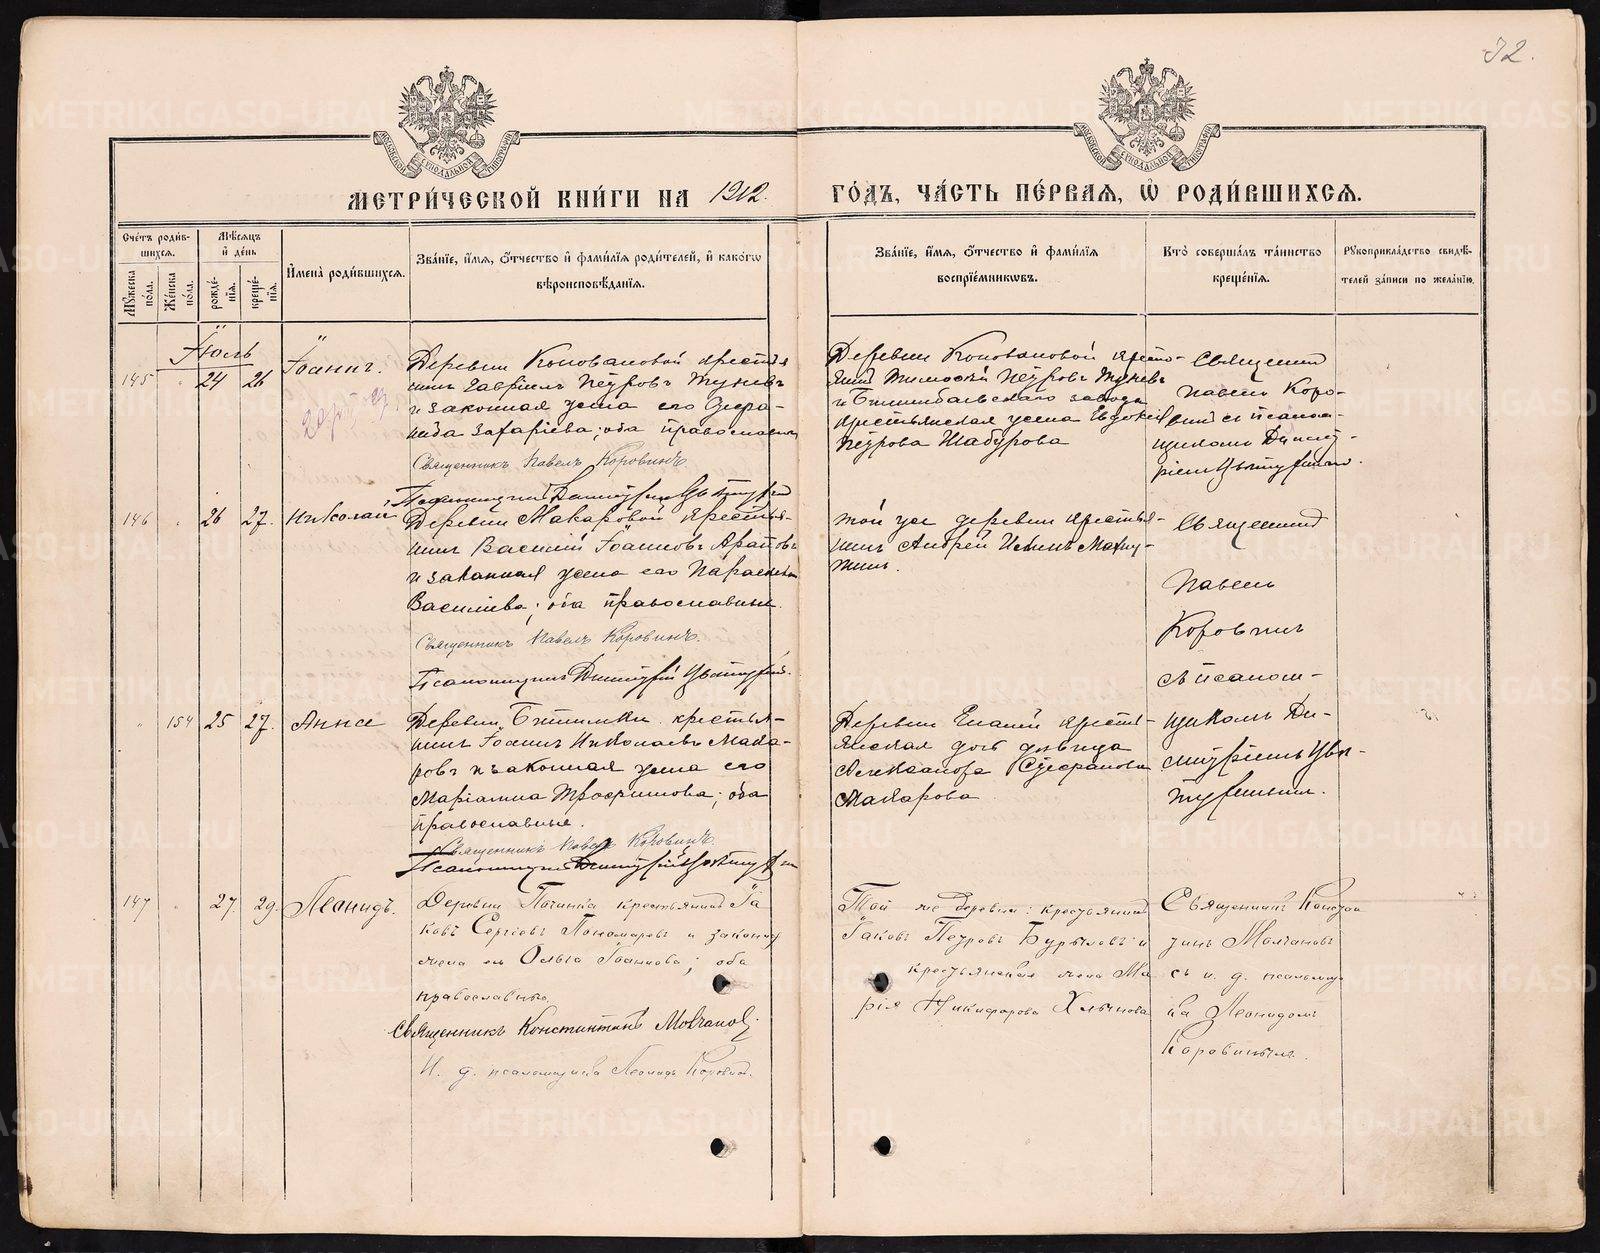 32.
МЕТРИ́ЧЕСКОЙ КНИ́ГИ НА 1912. ГО́ДЪ, ЧА́СТЬ ПЕ́РВАЯ, Ѡ҆ РОДИ́ВШИХСЯ.
Сче́тъ роди́в-
шихся.
Мꙋ́жеска по́ла.
Же́нска по́ла.
Мѣ́сяцъ
и҆ де́нь
рожде́-
нїя.
креще́-
нїя.
И҆мена̀ роди́вшихся.
Зва́нїе, и҆́мя, ѻ҆́тчество и҆ фами́лїя роди́телей, и҆ како́гѡ
вѣроисповѣ́данїя.
Зва́нїе, и҆́мя, ѻ҆́тчество и҆ фами́лїя
воспрїе́мникѡвъ.
Кто̀ соверша́лъ та́инство
креще́нїя.
Рꙋкоприкла́дство свидѣ́-
телей за́писи по жела́нїю.
Іюль
145 24 26 Іоаннъ.
Деревни Коноваловой крестья
нинъ Гавріилъ Петровъ
и законная жена его
Захаріева; оба православные
Священникъ Павелъ Коровинъ.
Деревни Коноваловой кресть-
Петровъ
и Билимбаевскаго завода
крестьянская жена Евдокія
Петрова Шабурова
Священник
Павелъ Коро-
вин съ псалом-
щиком Димит-
146 26 27. Николай
Деревни Макаровой крестья-
нинъ Василій Іоанновъ Араповъ
и законная жена его Параскева
Василіева; оба православные.
Священникъ Павелъ Коровинъ.
Псаломщикъ Димитрій
той же деревни крестья-
нинъ Андрей
Священник
Павелъ
Коровинъ
съ псалом-
154 25 27. Анна
Деревни Битимки крестья-
нинъ Іоаннъ Николаевъ Мака-
ровъ и законная жена его
Маріамна Трофимова; оба
православные.
Священникъ Павелъ Коровинъ.
Деревни кресть-
янская дочь девица
Александра
Макарова
щикомъ Ди-
147 27 29. Леонидъ.
Деревни Починка крестьянинъ Іа
ковъ Сергіевъ Пономаревъ и законная
жена его Ольга Іоаннова; оба
православные.
Священникъ Константинъ Молчановъ.
И. д. псаломщика Леонидъ Коровинъ.
Той же деревни: крестьянинъ
Іаковъ Петровъ Бурыловъ и
крестьянская жена Ма
рія Никифорова Хлынова
Священникъ Констан
тинъ Молчановъ
съ и. д. псаломщи
ка Леонидомъ
Коровинымъ.
METRIKI.GASO-URAL.RU